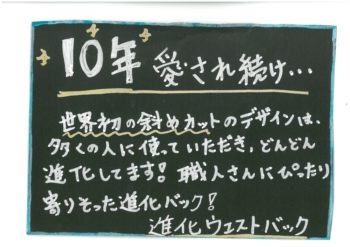 10年 愛され続け…
世界初の斜めカットのデザインは、
多くの人に使っていただき、どんどん
進化してます！職人さんにぴったり
寄りそった進化バック！
進化ウエストバック